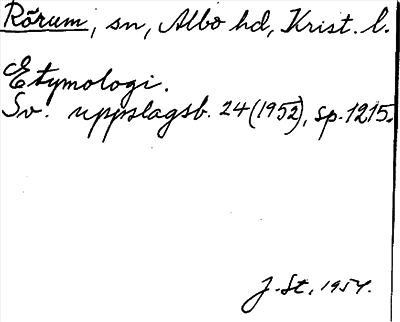 Rörum, sn, Albo hd, Krist. l.
Etymologi.
Sv. uppslagsb. 24 (1952), sp. 1215.
J. St, 1954.